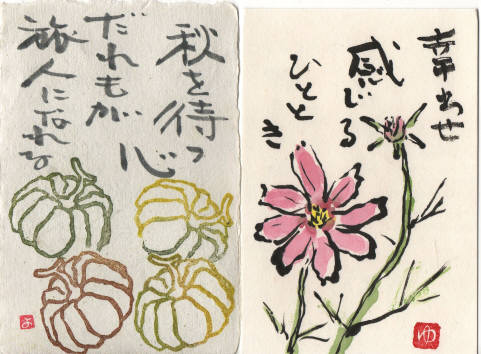 秋を待つ
心
だれもが
旅人になれる
よ
幸わせ
感じる
ひととき
ゆ